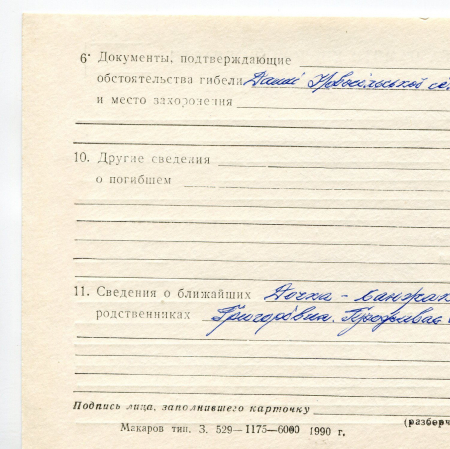 6. Документы, подтверждающие
обстоятельства гибели Данні Новосільської
и место захоронения
10. Другие сведения
о погибшем
11. Сведения о ближайших Дочка –
родственниках Григорівна. Проживає
Подпись лица, заполнившего карточку
(разберч
Макаров тип. З. 529—1175—6000 1990 г.